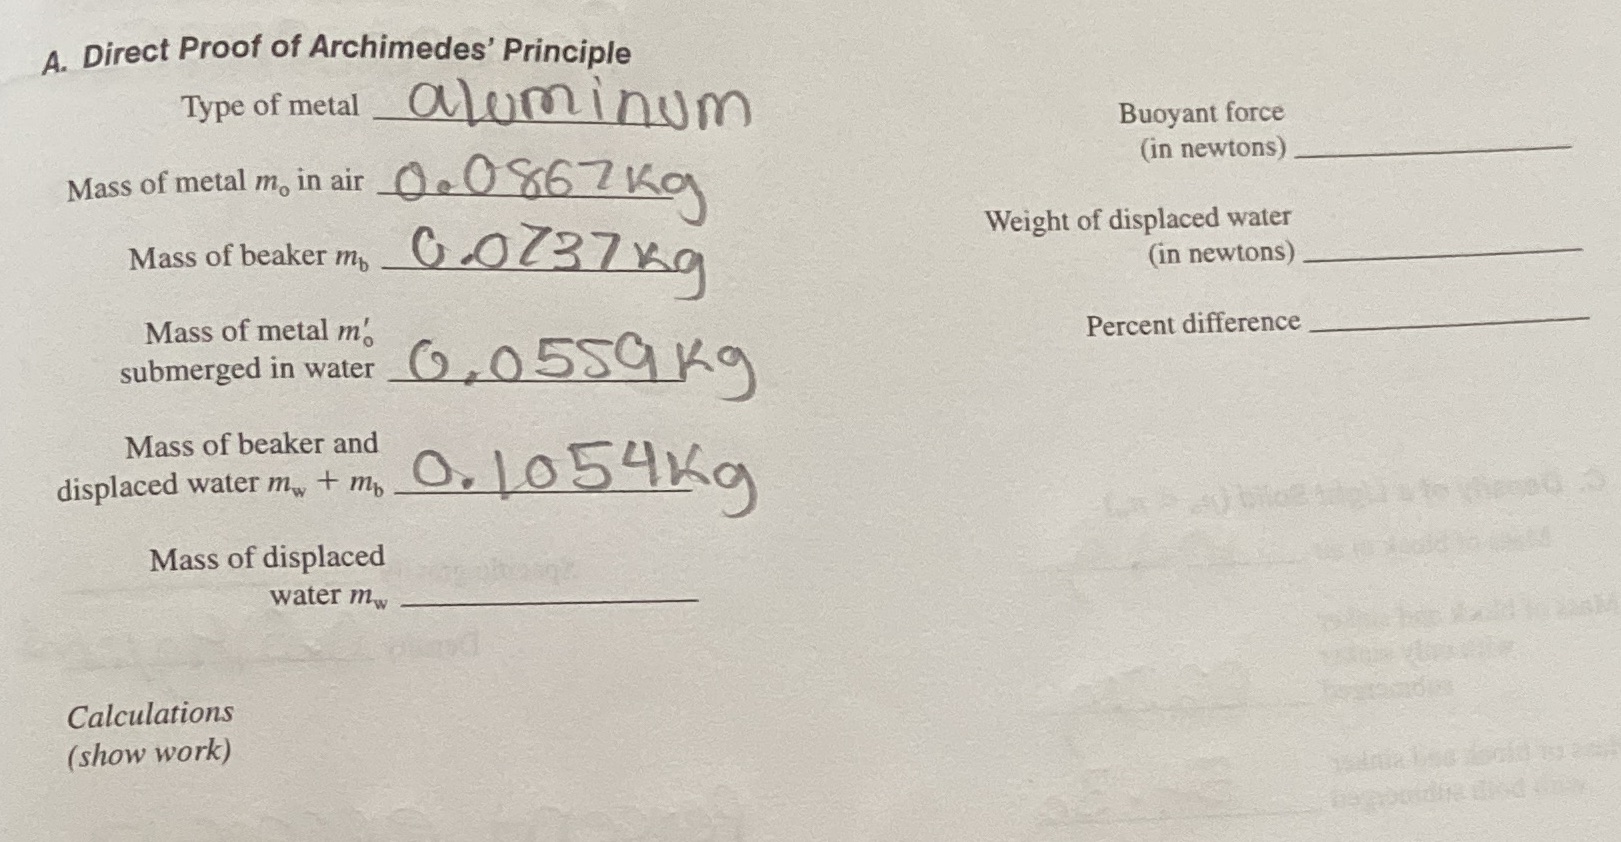 A. Direct Proof of Archimedes' Principle
Type of metal aluminum
Mass of metal mo in air 0.0867kg
Mass of beaker mb 0.0737kg
Mass of metal m′o
submerged in water 0.0559kg
Mass of beaker and
displaced water mw + mb 0.1054kg
Mass of displaced
water mw
Calculations
(show work)
Buoyant force
(in newtons)
Weight of displaced water
(in newtons)
Percent difference